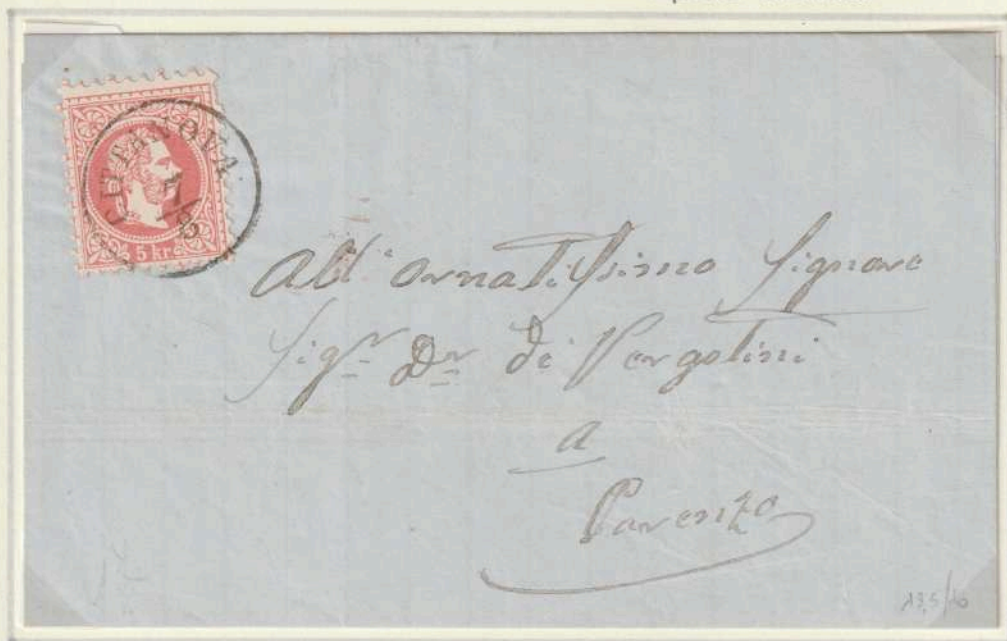 CITTANOVA
17/6
5 kr
All'ornatissimo Signore
Sigr Dr de Vergottini
a
Parenzo